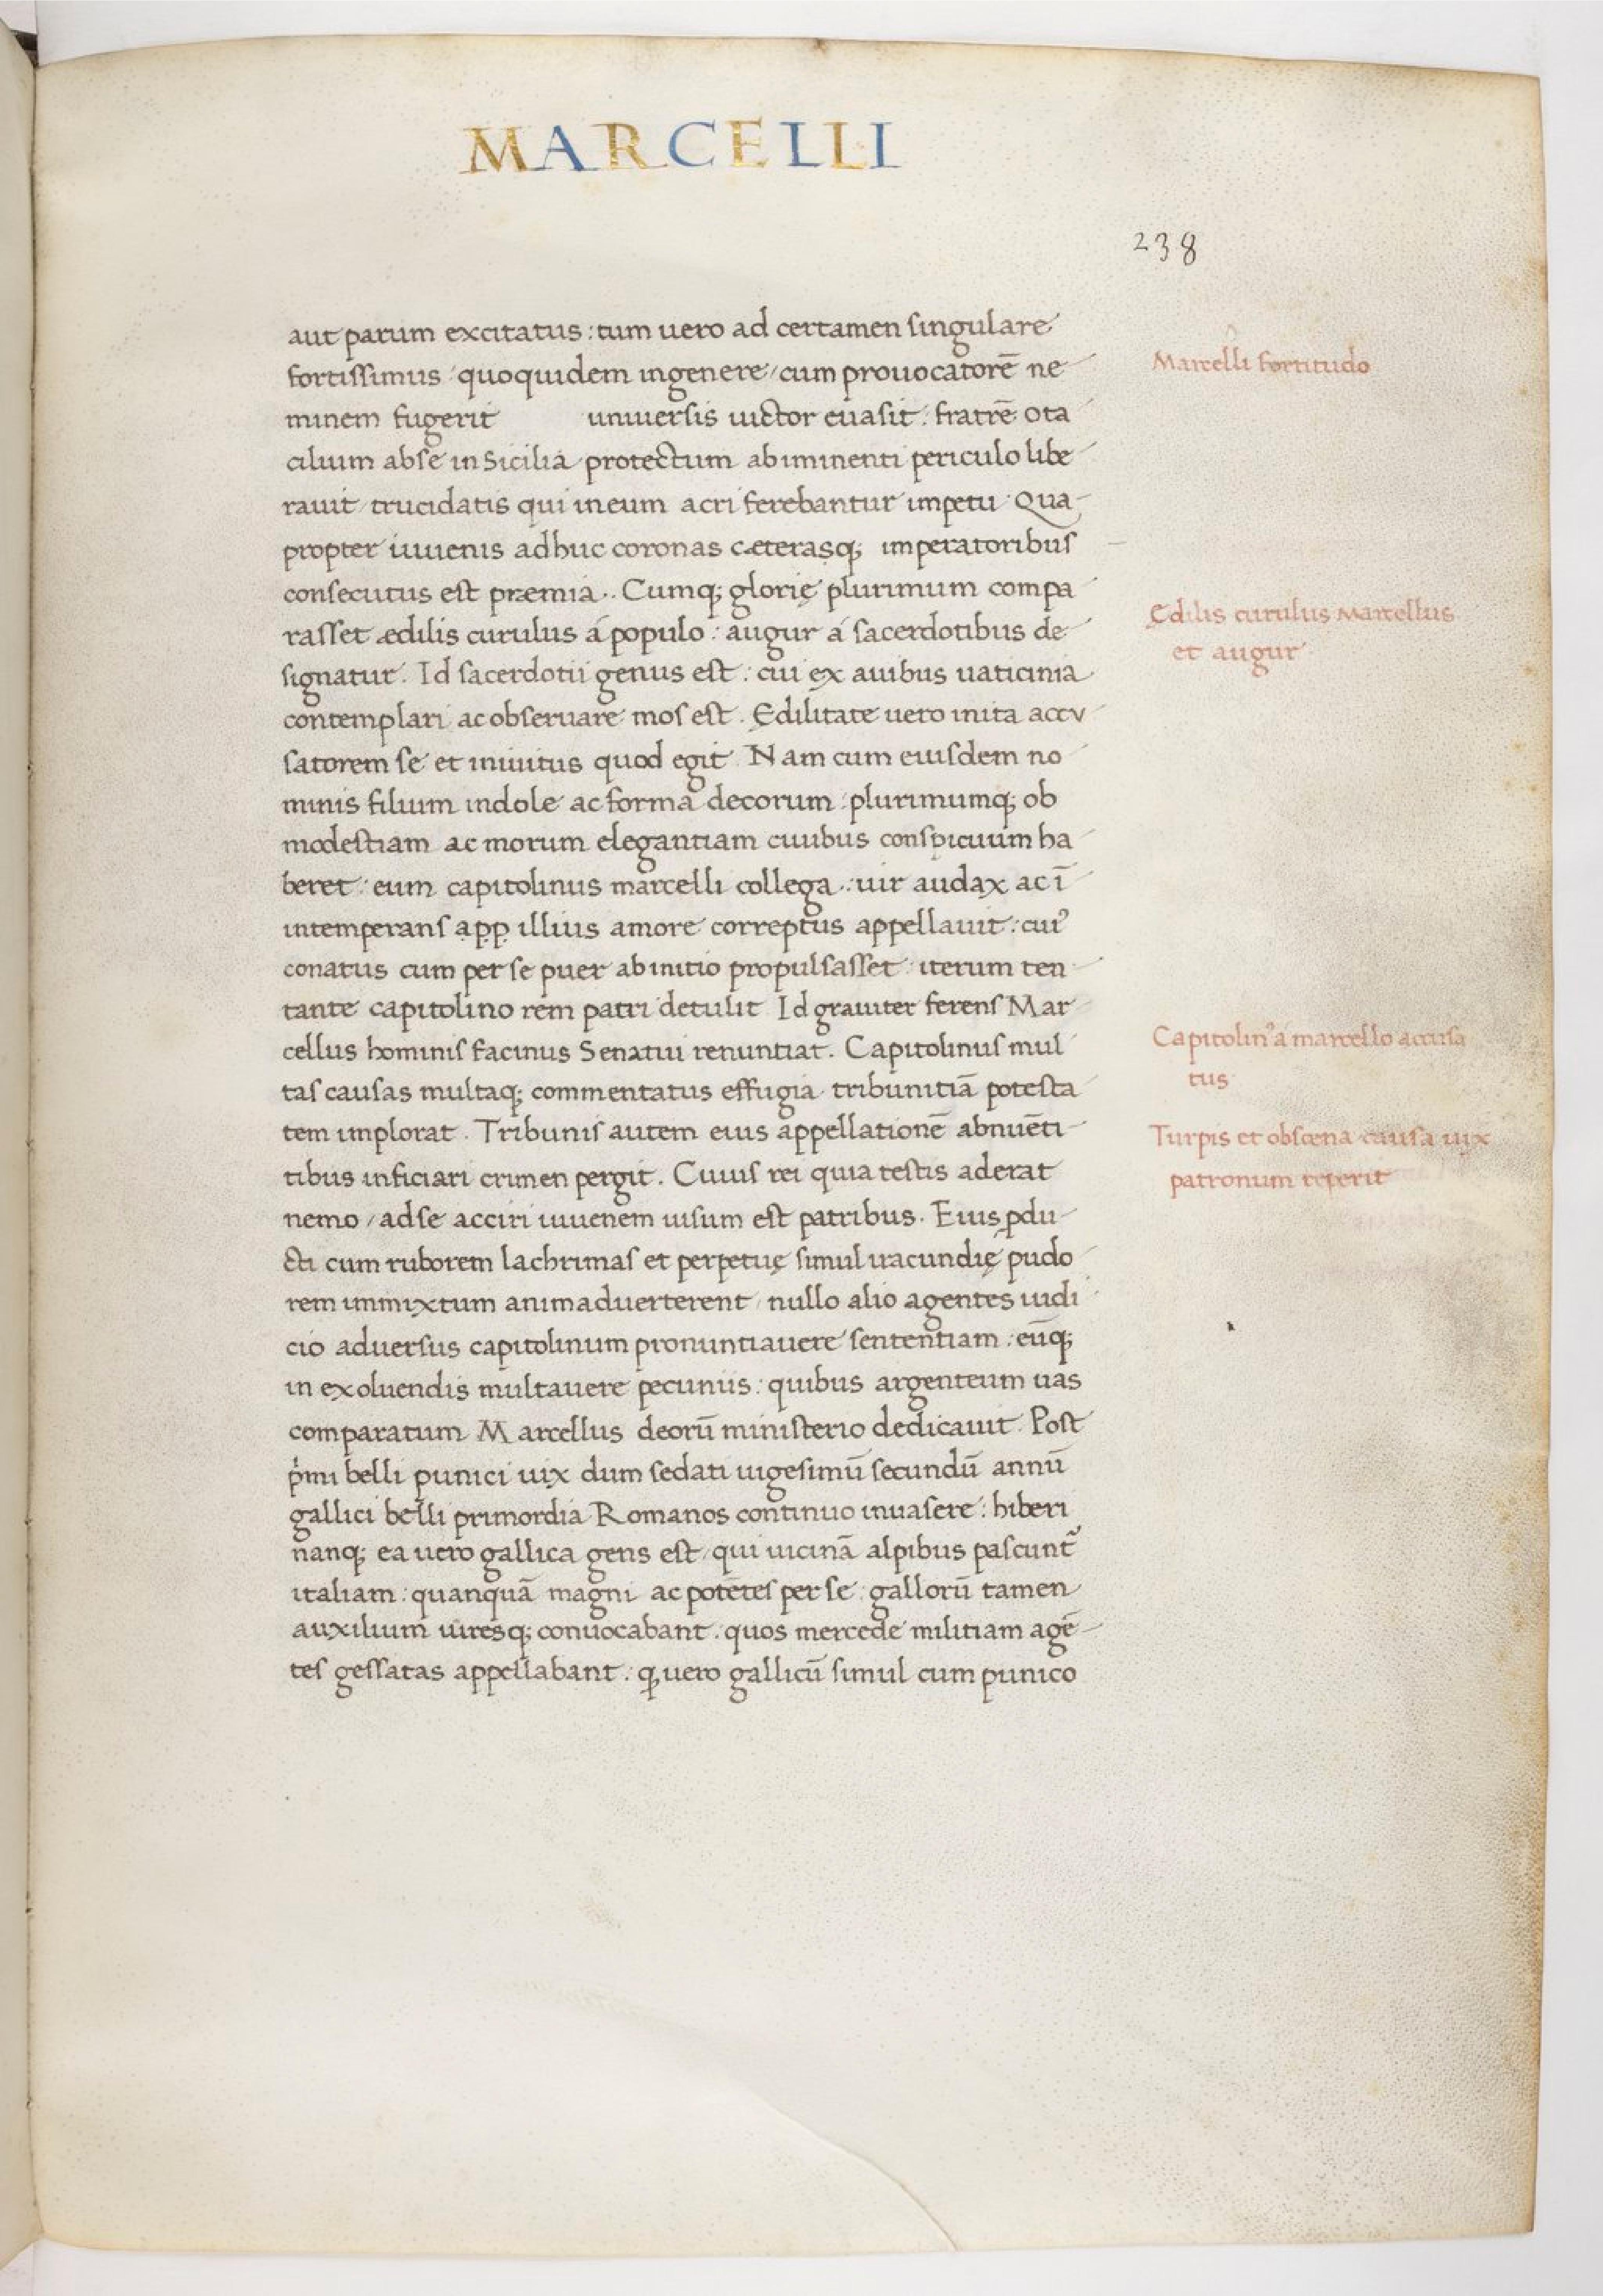 MARCELLI
238
aut parum excitatus : tum uero ad certamen singulare
fortissimus quoquidem ingenere / cum prouocatorē ne
minem fugerit uniuersis uictor euasit : fratrē ota
cilium abse in Sicilia protectum ab iminenti periculo libe
rauit / trucidatis qui in eum acri ferebantur impetu . Qua
propter iuuenis adhuc coronas cæterasq; imperatoribus
consecutus est præmia .. Cumq; glorię plurimum compa
rasset ædilis curulus á populo : augur á sacerdotibus de
signatur . Id sacerdotii genus est : cui ex auibus uaticinia
contemplari ac obseruare mos est . Ędilitate uero inita accu
satorem se et inuitus quod egit . Nam cum eiusdem no
minis filium indole ac forma decorum : plurimumq; ob
modestiam ac morum elegantiam ciuibus conspicuum ha
beret : eum capitolinus marcelli collega .. uir audax ac ī
intemperans ap̣p̣ illius amore correptus appellauit : cui9
conatus cum per se puer ab initio propulsasset : iterum ten
tante capitolino rem patri detulit Id grauiter ferens Mar
cellus hominis facinus Senatui renuntiat . Capitolinus mul
tas causas multaq; commentatus effugia tribunitiā potesta
tem implorat . Tribunis autem eius appellationē abnuēti
tibus inficiari crimen pergit . Cuius rei quia testis aderat
nemo / adse acciri iuuenem uisum est patribus . Eius ꝓdu
cti cum ruborem lachrimas et perpetuę simul iracundię pudo
rem immixtum animaduerterent / nullo alio agentes iudi
cio aduersus capitolinum pronuntiauere sententiam : eūq;
in exoluendis multauere pecuniis : quibus argenteum uas
comparatum Marcellus deorū ministerio dedicauit . Post
pͥmi belli punici uix dum sedati uigesimū secundū annū
gallici belli primordia Romanos continuo inuasere : hiberi
nanq; ea uero gallica gens est / qui uicinā alpibus pascunt᷑
italiam : quanquā magni ac potētes per se : gallorū tamen
auxilium uiresq; conuocabant . quos mercede militiam agē
tes gessatas appellabant : ꝙ uero gallicū simul cum punico
Marcelli fortitudo
Ędilis curulus Marcellus
et augur
Capitolin9 a marcello accusa
tus
Turpis et obscœna causa uix
patronum reperit